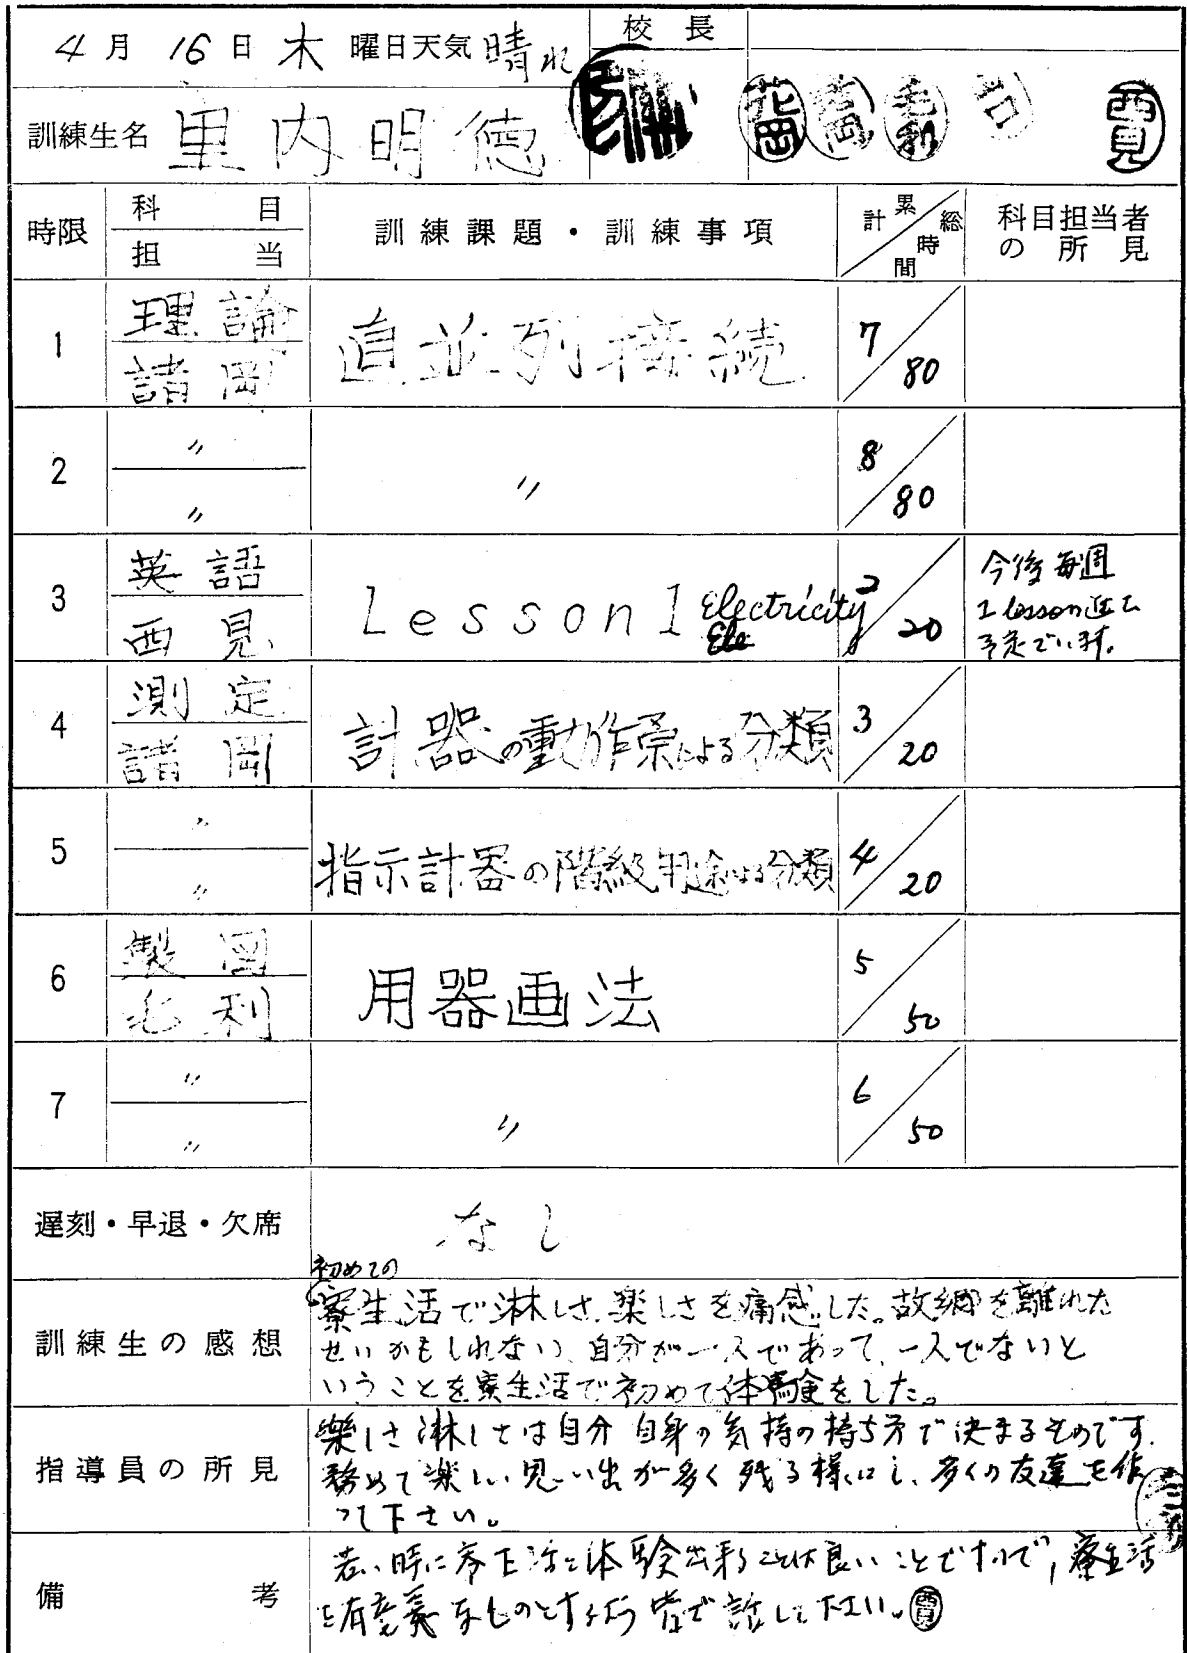 4月 16日 木 曜日天気 晴れ
校長
花岡 吉岡 毛利 西見
訓練生名 里内明徳
時限 科目 担当 訓練課題・訓練事項 累計 総時間 科目担当者の所見
1 理論 諸岡 直並列接続 7/80
2 〃 〃 〃 8/80
3 英語 西見 Lesson 1 Electricity 2/20
Ele
今後毎週
1 lesson進む
予定でいます。
4 測定 諸岡 計器の動作原による分類 3/20
5 〃 〃 指示計器の階級用途による分類 4/20
6 製図 毛利 用器画法 5/50
7 〃 〃 〃 6/50
遅刻・早退・欠席 なし
訓練生の感想
初めての
寮生活で淋しさ、楽しさを痛感した。故郷を離れた
せいかもしれない、自分が一人であって、一人でないと
いうことを寮生活で初めて体験をした。
指導員の所見
楽しさ淋しさは自分自身の気持の持ち方で決まるものです。
務めて楽しい思い出が多く残る様にし、多くの友達を作
って下さい。
備考
若い時に寮生活を体験出来ることは良いことですので、寮生活
を有意義なものとするよう皆で話して下さい。西見